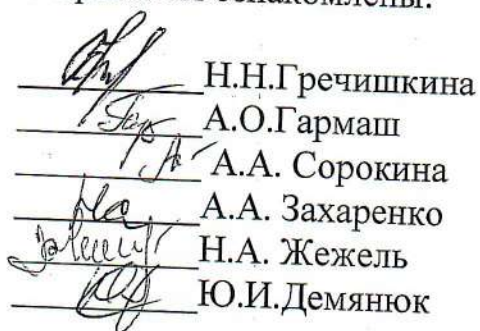 ознакомлены:
Н.Н.Гречишкина
А.О.Гармаш
А.А. Сорокина
А.А. Захаренко
Н.А. Жежель
Ю.И.Демянюк